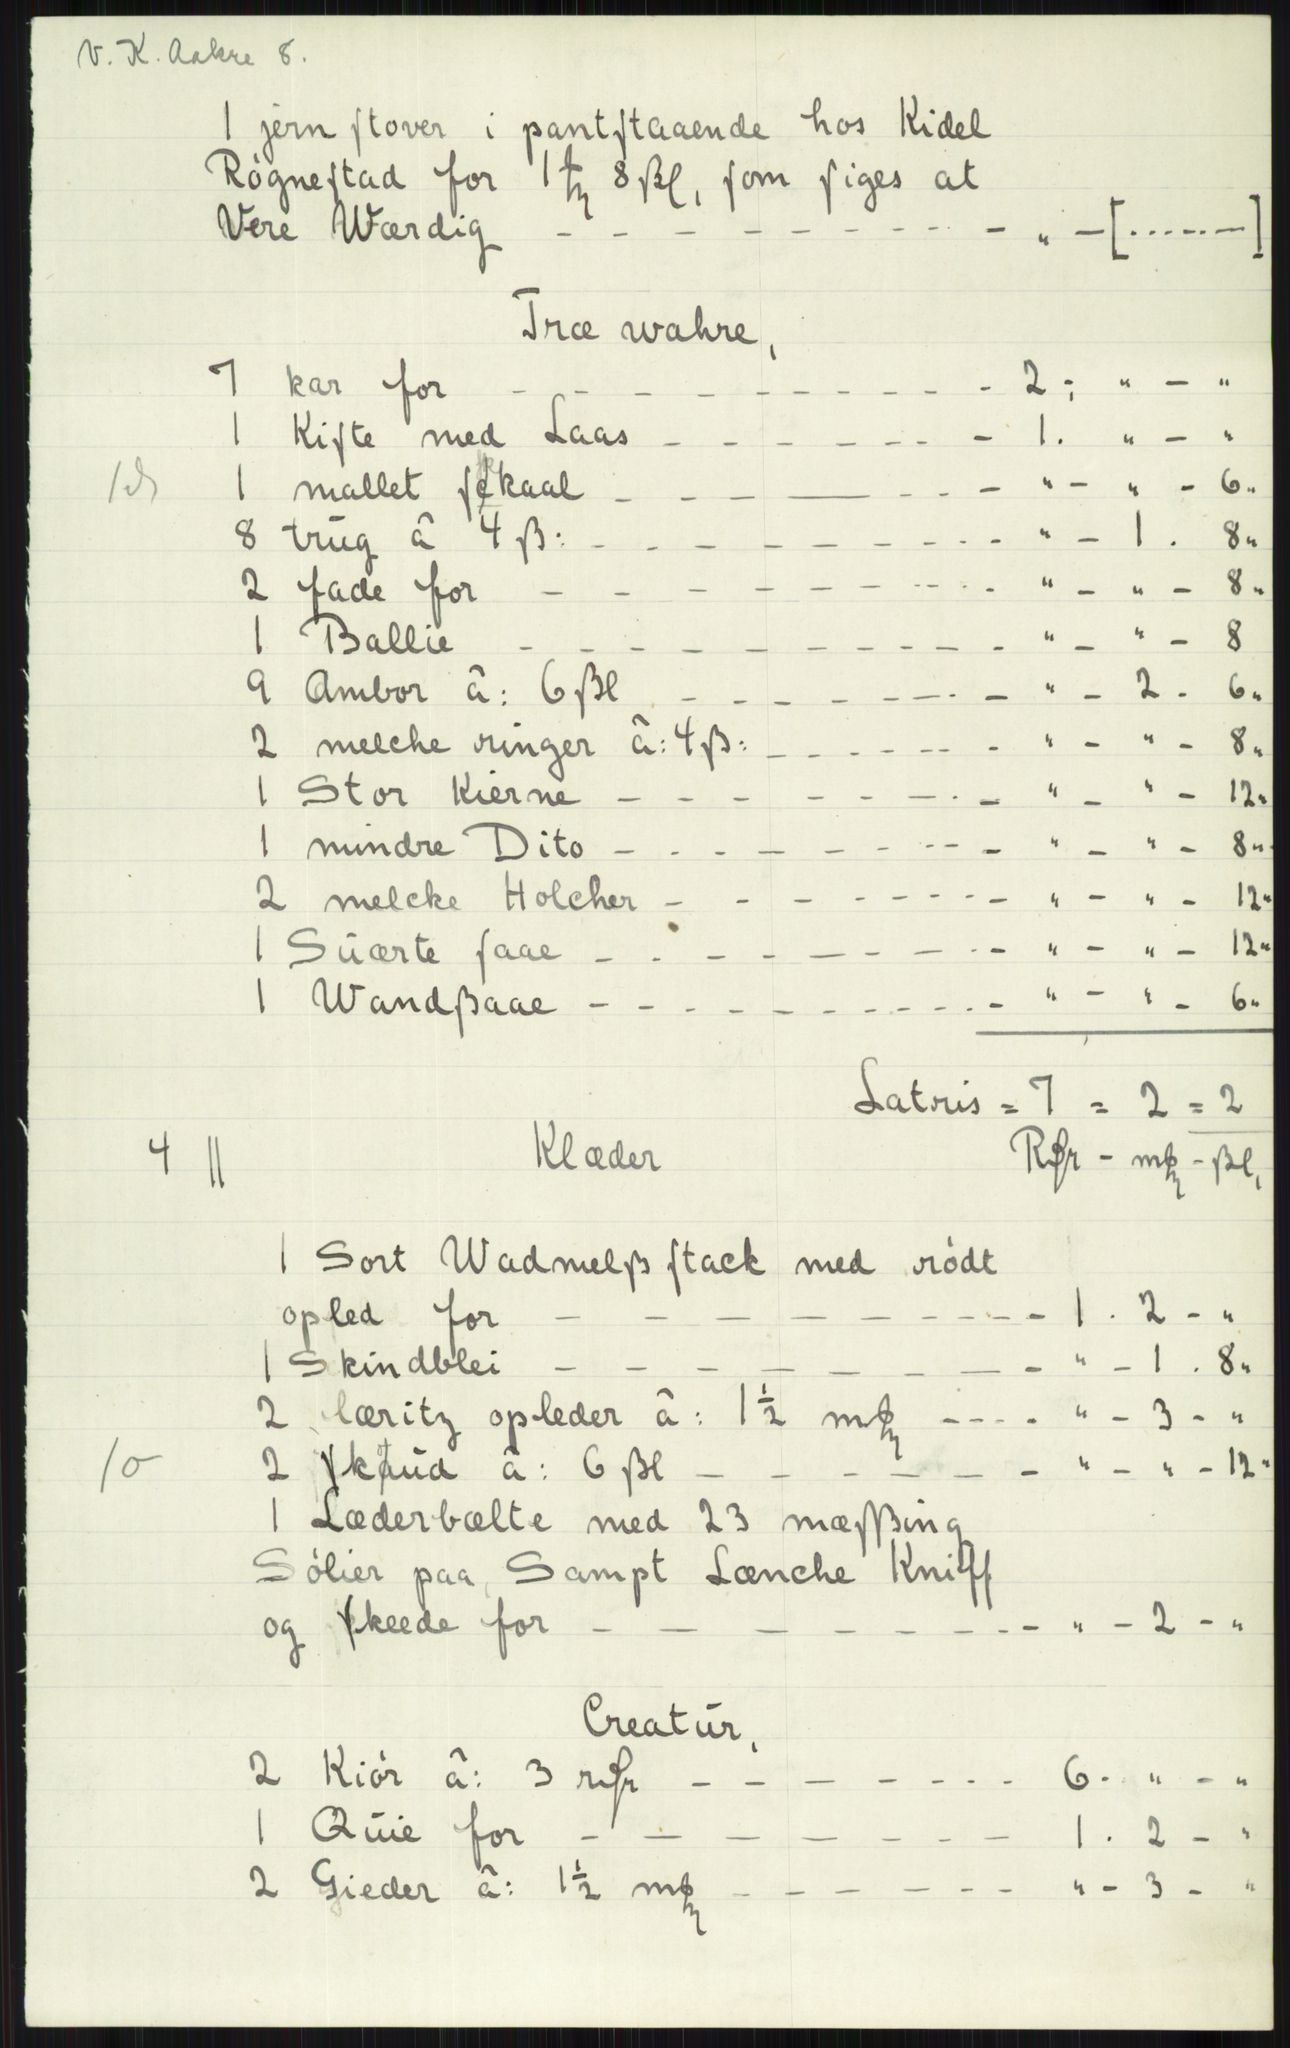 V. K. Aakre 8.
1 jern ſtover i pantſtaaende hos Kidel
Rógneſtad for 1 8 ßl, ſom ſiges at
Vere Wærdig - - - - - - - - - „ - [.......-]
Træ wahre,
7 kar for - - - - - - - - - 2 ; „ - „
1 Kiſte med Laas - - - - - - - 1. „ - „
1 mallet kaal - - - - - - „ - „ - 6„
8 trūg â 4 ß: - - - - - - - - - „ - 1 . 8„
2 fade for - - - - - - - - - „ - „ - 8„
1 Ballie - - - - - - - - - - „ - „ - 8
9 Ambor â: 6 ßl - - - - - - - „ - 2 - 6„
2 melche ringer â: 4 ß: - - - - - - „ - „ - 8„
1 Stor Kierne - - - - - - - - „ - „ - 12„
1 mindre Dito - - - - - - - - - „ - „ - 8„
2 melcke Holcher - - - - - - - - „ - „ - 12„
1 Sūærte ſaae - - - - - - - - „ - „ - 12„
1 Wandßaae - - - - - - - - - „ - „ - 6„
Latris = 7 = 2 = 2
4 || Klæder Rdr - mk - ßl,
1 Sort Wadmelß ſtack med ródt
opled for - - - - - - - - - 1 . 2 - „
1 Skindblei - - - - - - - - „ - 1 . 8„
2 læritz opleder â: 1½ mk - - - - „ - 3 - „
2 â: 6 ßl - - - - - - - „ - „ - 12„
1 Læderbælte med 23 mæſßing
Sólier paa, Sampt Lænche Kniff
og ſkeede for - - - - - - - - - „ - 2 - „
Creatūr,
2 Kiór â: 3 rdr - - - - - - - - 6 - „ - „
1 Qūie for - - - - - - - - 1 . 2 - „
2 Gieder â: 1½ mk - - - - - - - „ - 3 - „